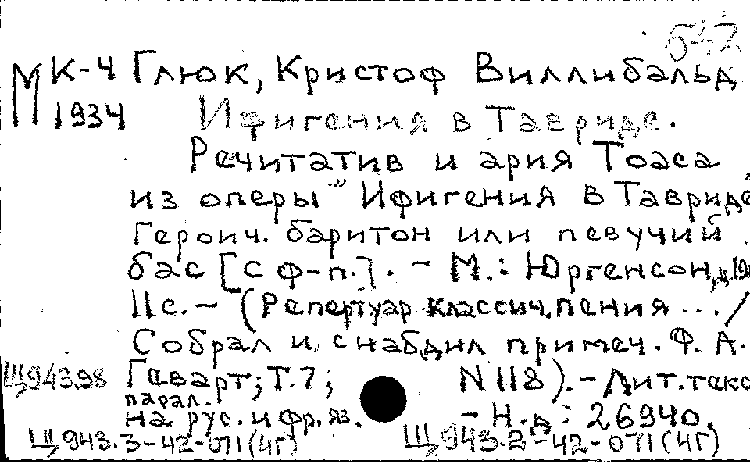 542
М К-4 Глюк, Кристоф Виллибальд
1934 Ифигения в Тавриде.
Речитатив и ария Тоаса
из оперы "Ифигения в Тавриде
Героич. баритон или певучий
бас [с ф-п.]. - М.: Юргенсон,
11с. - (Репертуар классич. пения ... /
Собрал и снабдил примеч. Ф. А.
Щ943.98 Геварт; Т.7; N 118). - Лит. текс
парал.
на рус. и фр. яз. - Н.д.: 26940.
Щ943.3-42-071(4Г) Щ943.2-42-071(4Г)